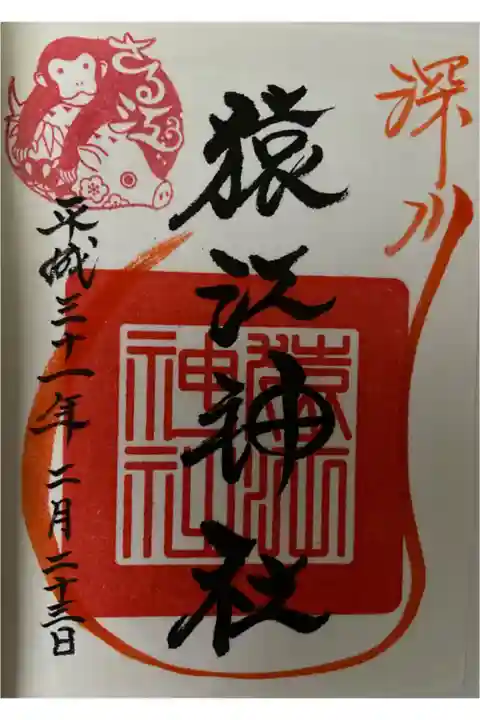 深川
猿江神社
猿江
神社
さる江
平成三十一年 二月二十三日